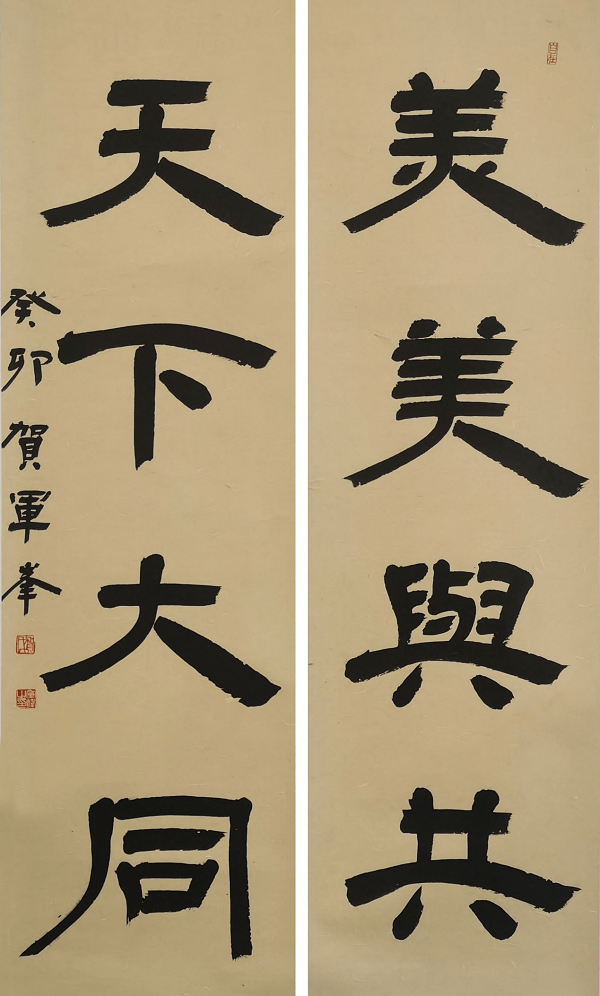 美美與共
天下大同
癸卯賀軍峯